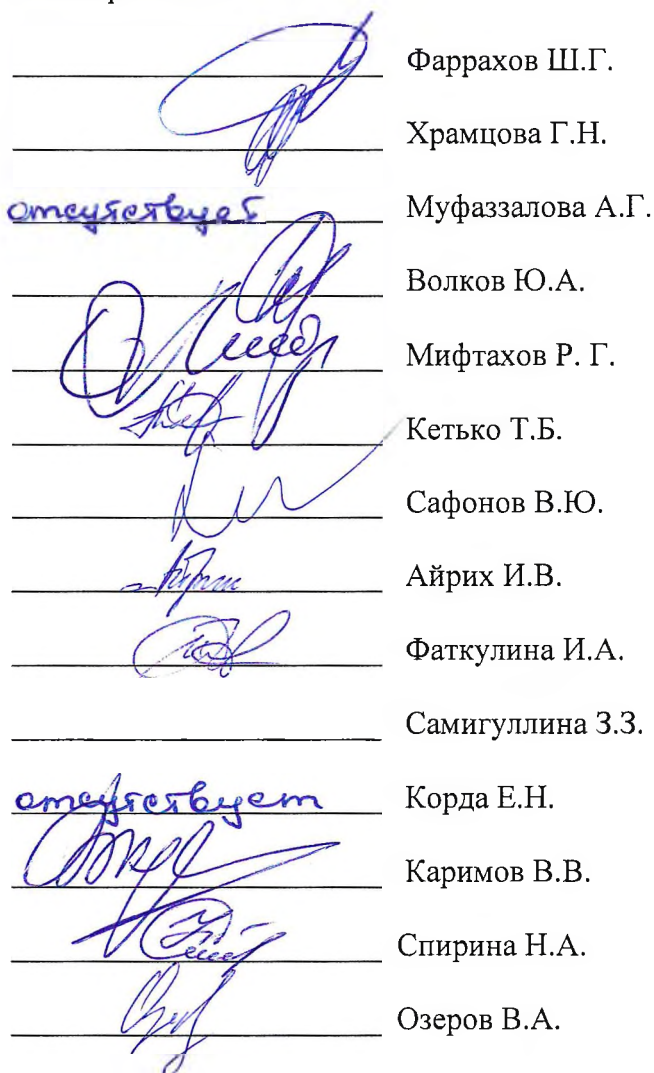 Фаррахов Ш.Г.
Храмцова Г.Н.
отсутствует Муфаззалова А.Г.
Волков Ю.А.
Мифтахов Р. Г.
Кетько Т.Б.
Сафонов В.Ю.
Айрих И.В.
Фаткулина И.А.
Самигуллина З.З.
отсутствует Корда Е.Н.
Каримов В.В.
Спирина Н.А.
Озеров В.А.